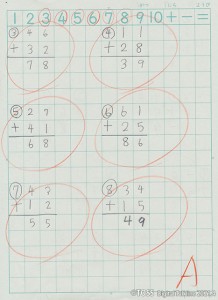 1 2 3 4 5 6 7 8 9 10 + − =
③ 46
+ 32
78
④ 11
+ 28
39
⑤ 27
+ 41
68
⑥ 61
+ 25
86
⑦ 43
+ 12
55
⑧ 34
+ 15
49
A